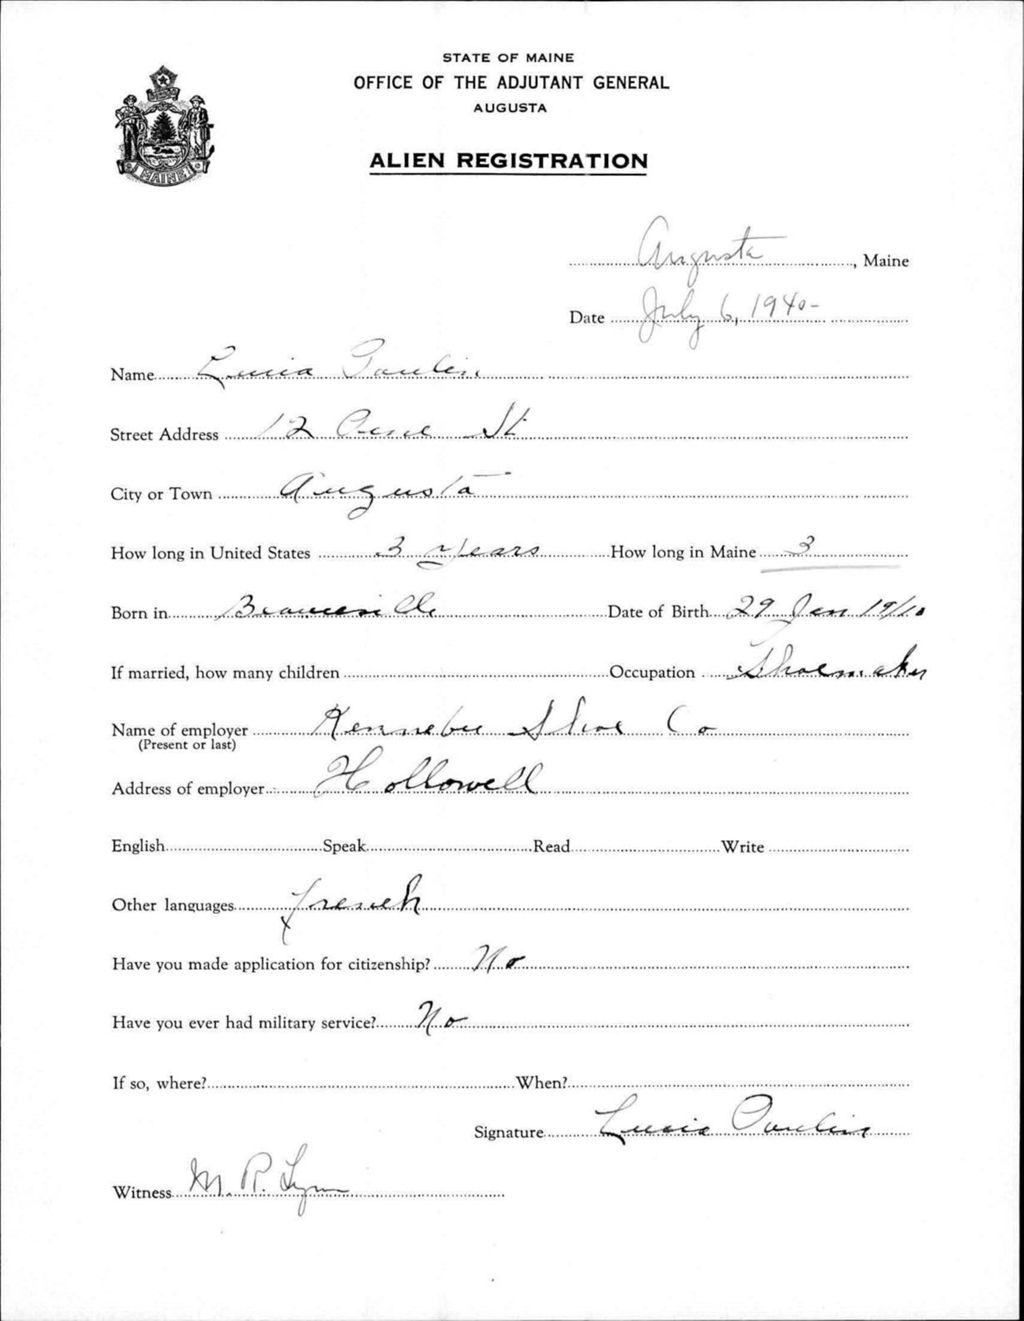 STATE OF MAINE
OFFICE OF THE ADJUTANT GENERAL
AUGUSTA
ALIEN REGISTRATION
MAINE
Augusta, Maine
Date July 6, 1940-
Name Lucia Poulin
Street Address 12 St
City or Town Augusta
How long in United States 3 years How long in Maine 3
Born in Beauceville Date of Birth 29 Jan 1910
If married, how many children Occupation Shoemaker
Name of employer Kennebec Shoe Co
(Present or last)
Address of employer Hollowell
English Speak Read Write
Other languages french
Have you made application for citizenship? No
Have you ever had military service? No
If so, where? When?
Signature Lucia Poulin
Witness M. R. Lynn